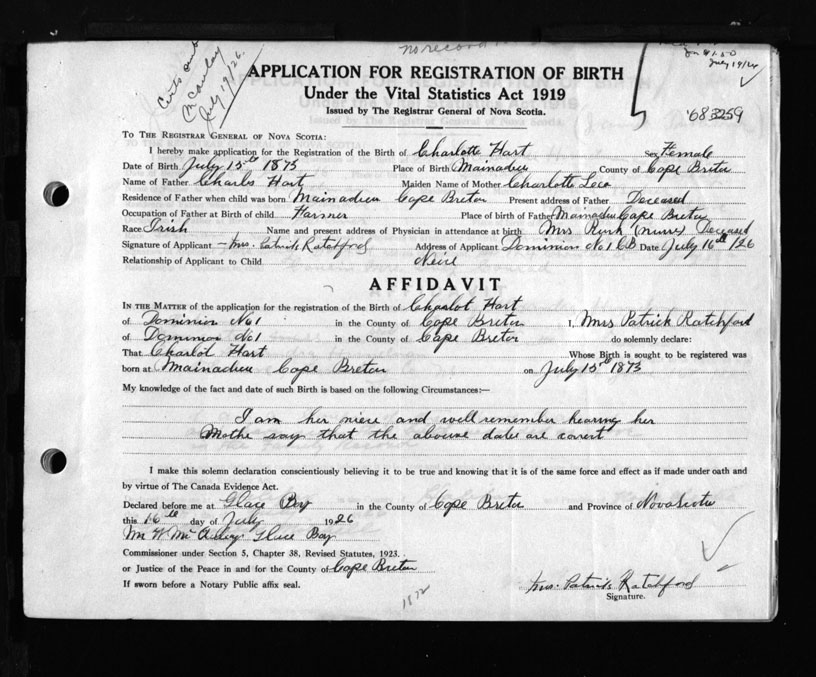 no record
July 19/26
July 19/26
APPLICATION FOR REGISTRATION OF BIRTH
Under the Vital Statistics Act 1919
Issued by The Registrar General of Nova Scotia.
683259
TO THE REGISTRAR GENERAL OF NOVA SCOTIA:
I hereby make application for the Registration of the Birth of Charlotte Hart Sex Female
Date of Birth July 15th 1873 Place of Birth Mainadieu County of Cape Breton
Name of Father Charles Hart Maiden Name of Mother Charlotte
Residence of Father when child was born Mainadieu Cape Breton Present address of Father Deceased
Occupation of Father at Birth of child Farmer Place of birth of Father Mainadieu Cape Breton
Race Irish Name and present address of Physician in attendance at birth Mrs (nurse) Deceased
Signature of Applicant - Mrs. Patrick Ratchford Address of Applicant Dominion No 1 CB Date July 16th /26
Relationship of Applicant to Child Neice
AFFIDAVIT
IN THE MATTER of the application for the registration of the Birth of Charlot Hart
of Dominion No 1 in the County of Cape Breton I, Mrs Patrick Ratchford
of Dominion No 1 in the County of Cape Breton do solemnly declare:
That Charlot Hart Whose Birth is sought to be registered was
born at Mainadieu Cape Breton on July 15th 1873
My knowledge of the fact and date of such Birth is based on the following Circumstances:—
I am her niese and well remember hearing her
Mothe say that the abouve date are corect
I make this solemn declaration conscientiously believing it to be true and knowing that it is of the same force and effect as if made under oath and
by virtue of The Canada Evidence Act.
Declared before me at Glace Bay in the County of Cape Breton and Province of Nova Scotia
this 16th day of July 1926
Glace Bay
Commissioner under Section 5, Chapter 38, Revised Statutes, 1923.
or Justice of the Peace in and for the County of Cape Breton
If sworn before a Notary Public affix seal.
Mrs. Patrick Ratchford
Signature.
1872